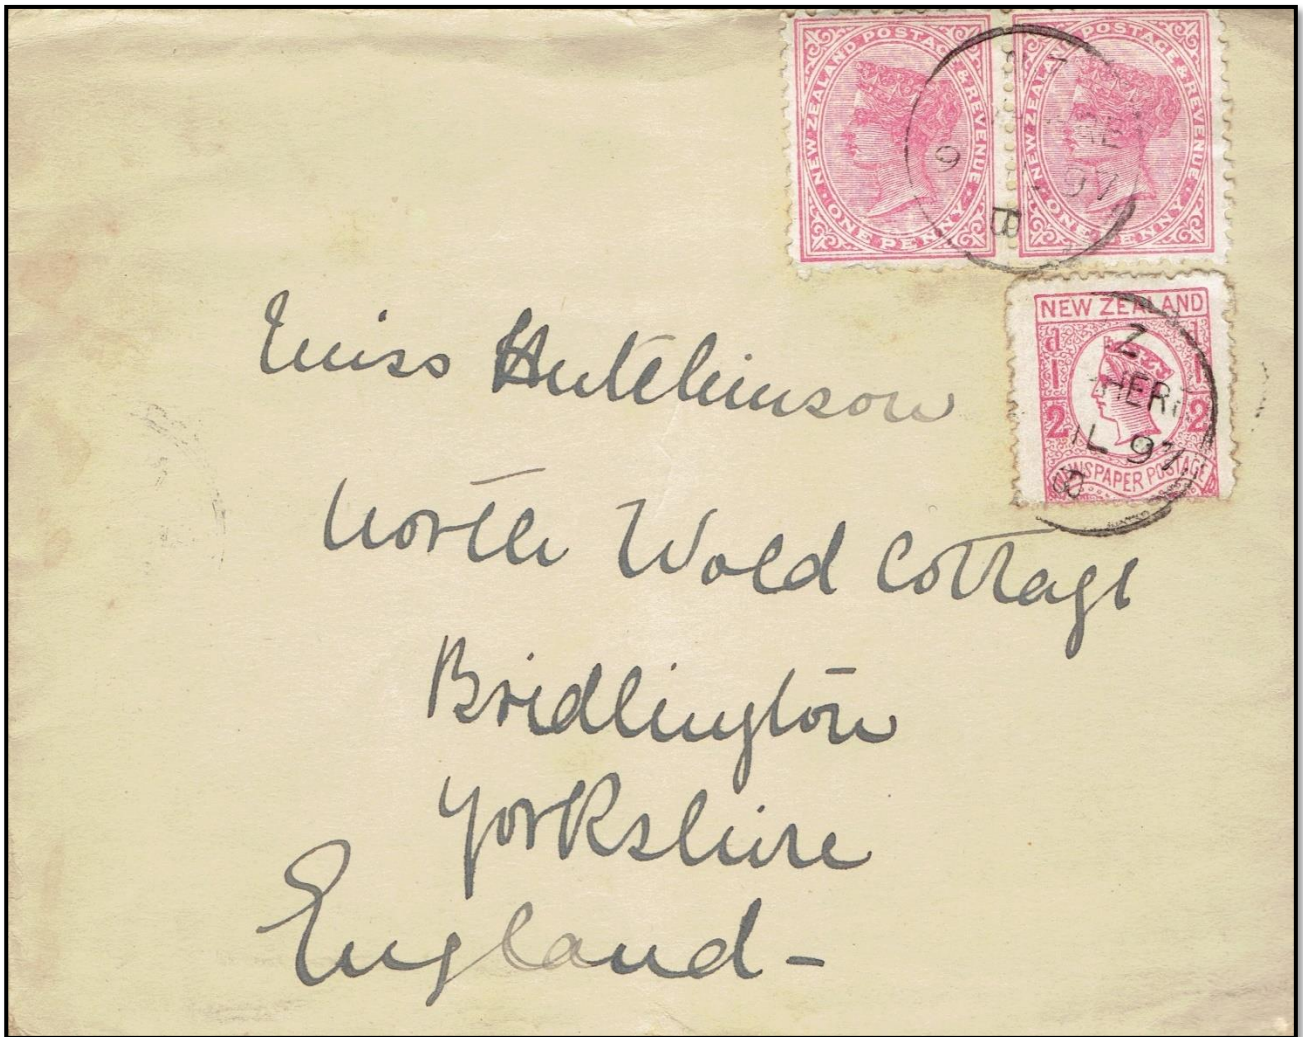 NEW ZEALAND POSTAGE & REVENUE
ONE PENNY
NEW ZEALAND POSTAGE & REVENUE
ONE PENNY
9
97
B
NEW ZEALAND
1/2 d
1/2
NEWSPAPER POSTAGE
Z
HER
L 97
8
Miss Hutchinson
North Wold Cottage
Bridlington
Yorkshire
England -